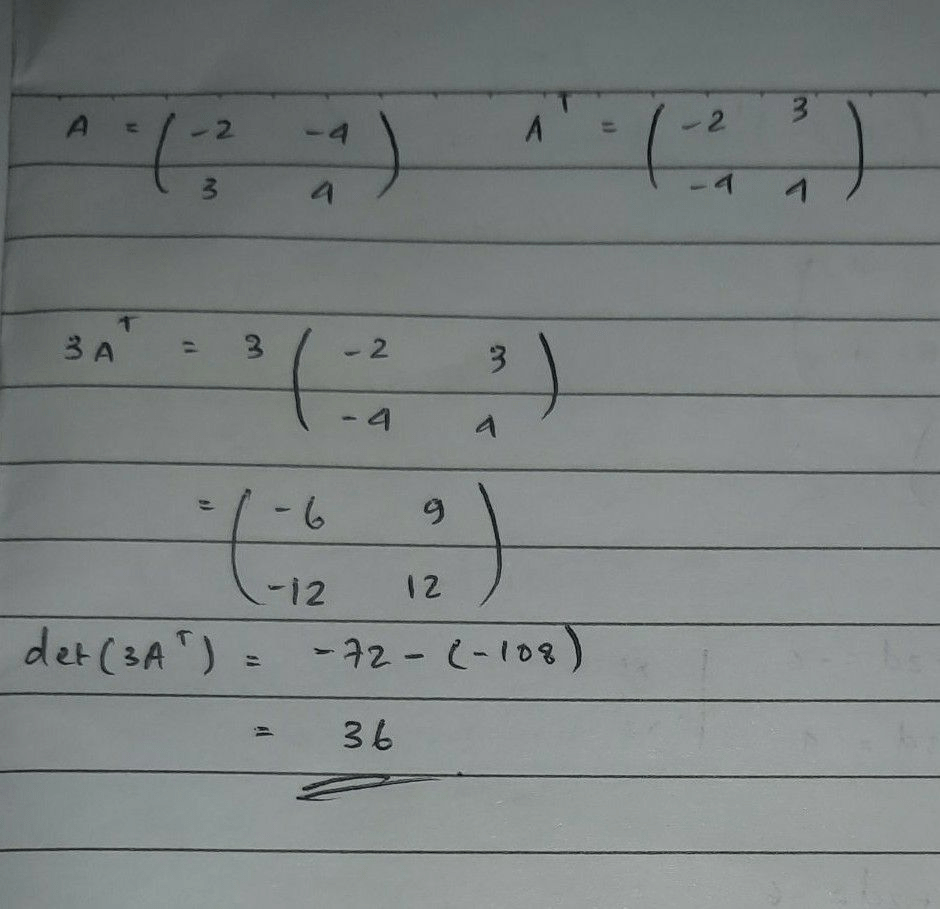 A = ( -2 -4 ) A^T = ( -2 3 )
( 3 4 ) ( -4 4 )
3A^T = 3 ( -2 3 )
( -4 4 )
= ( -6 9 )
( -12 12 )
det(3A^T) = -72 - (-108)
= 36